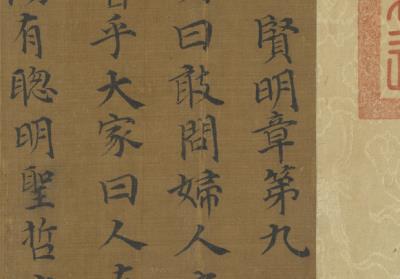 賢明章第九
曰敢問婦人
乎大家曰人
有聦明聖哲